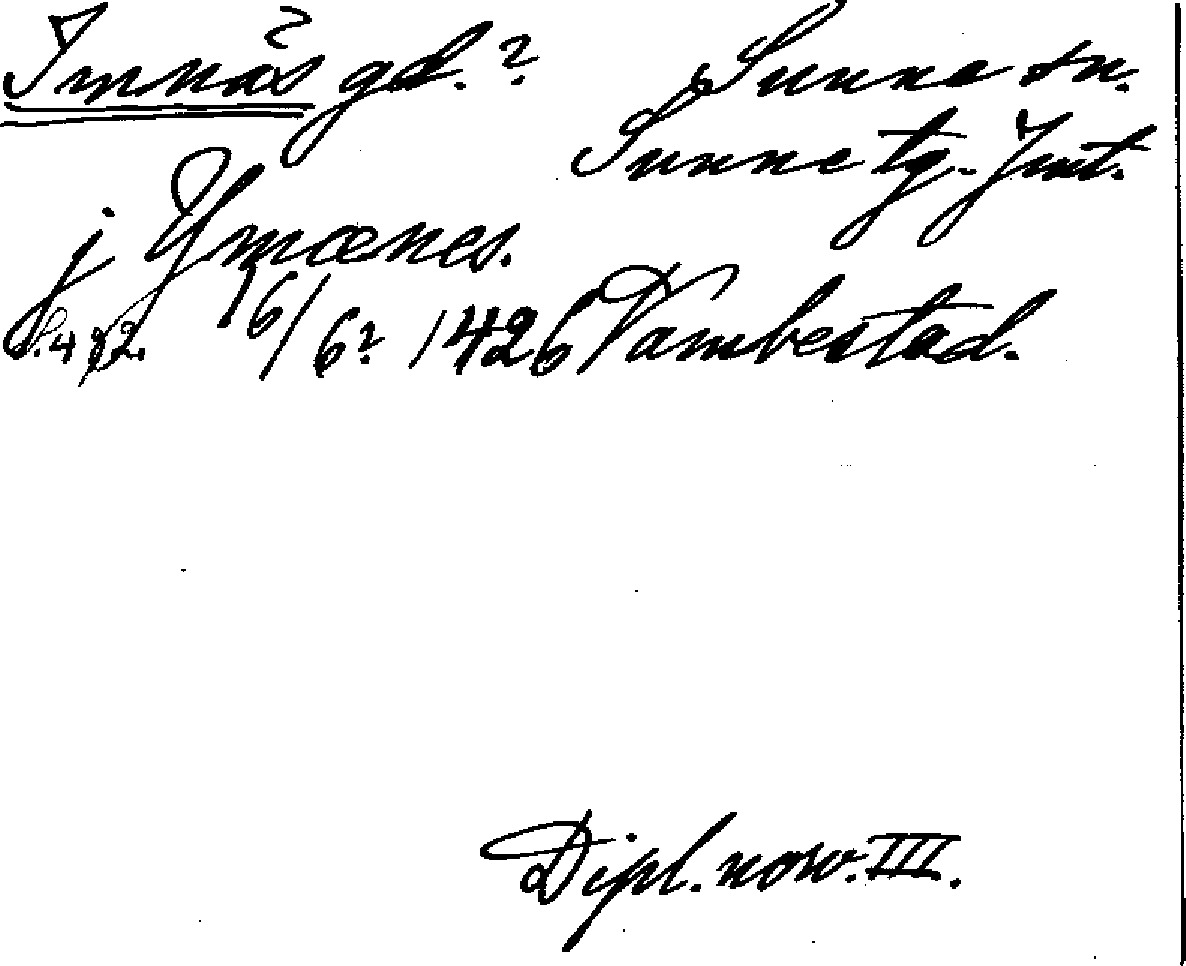 Imnäs gd.? Sunne sn.
Sunne tg. Jmt.
j Ymænes.
S. 492. 16/6? 1426 Vambestad.
Dipl. norv. III.